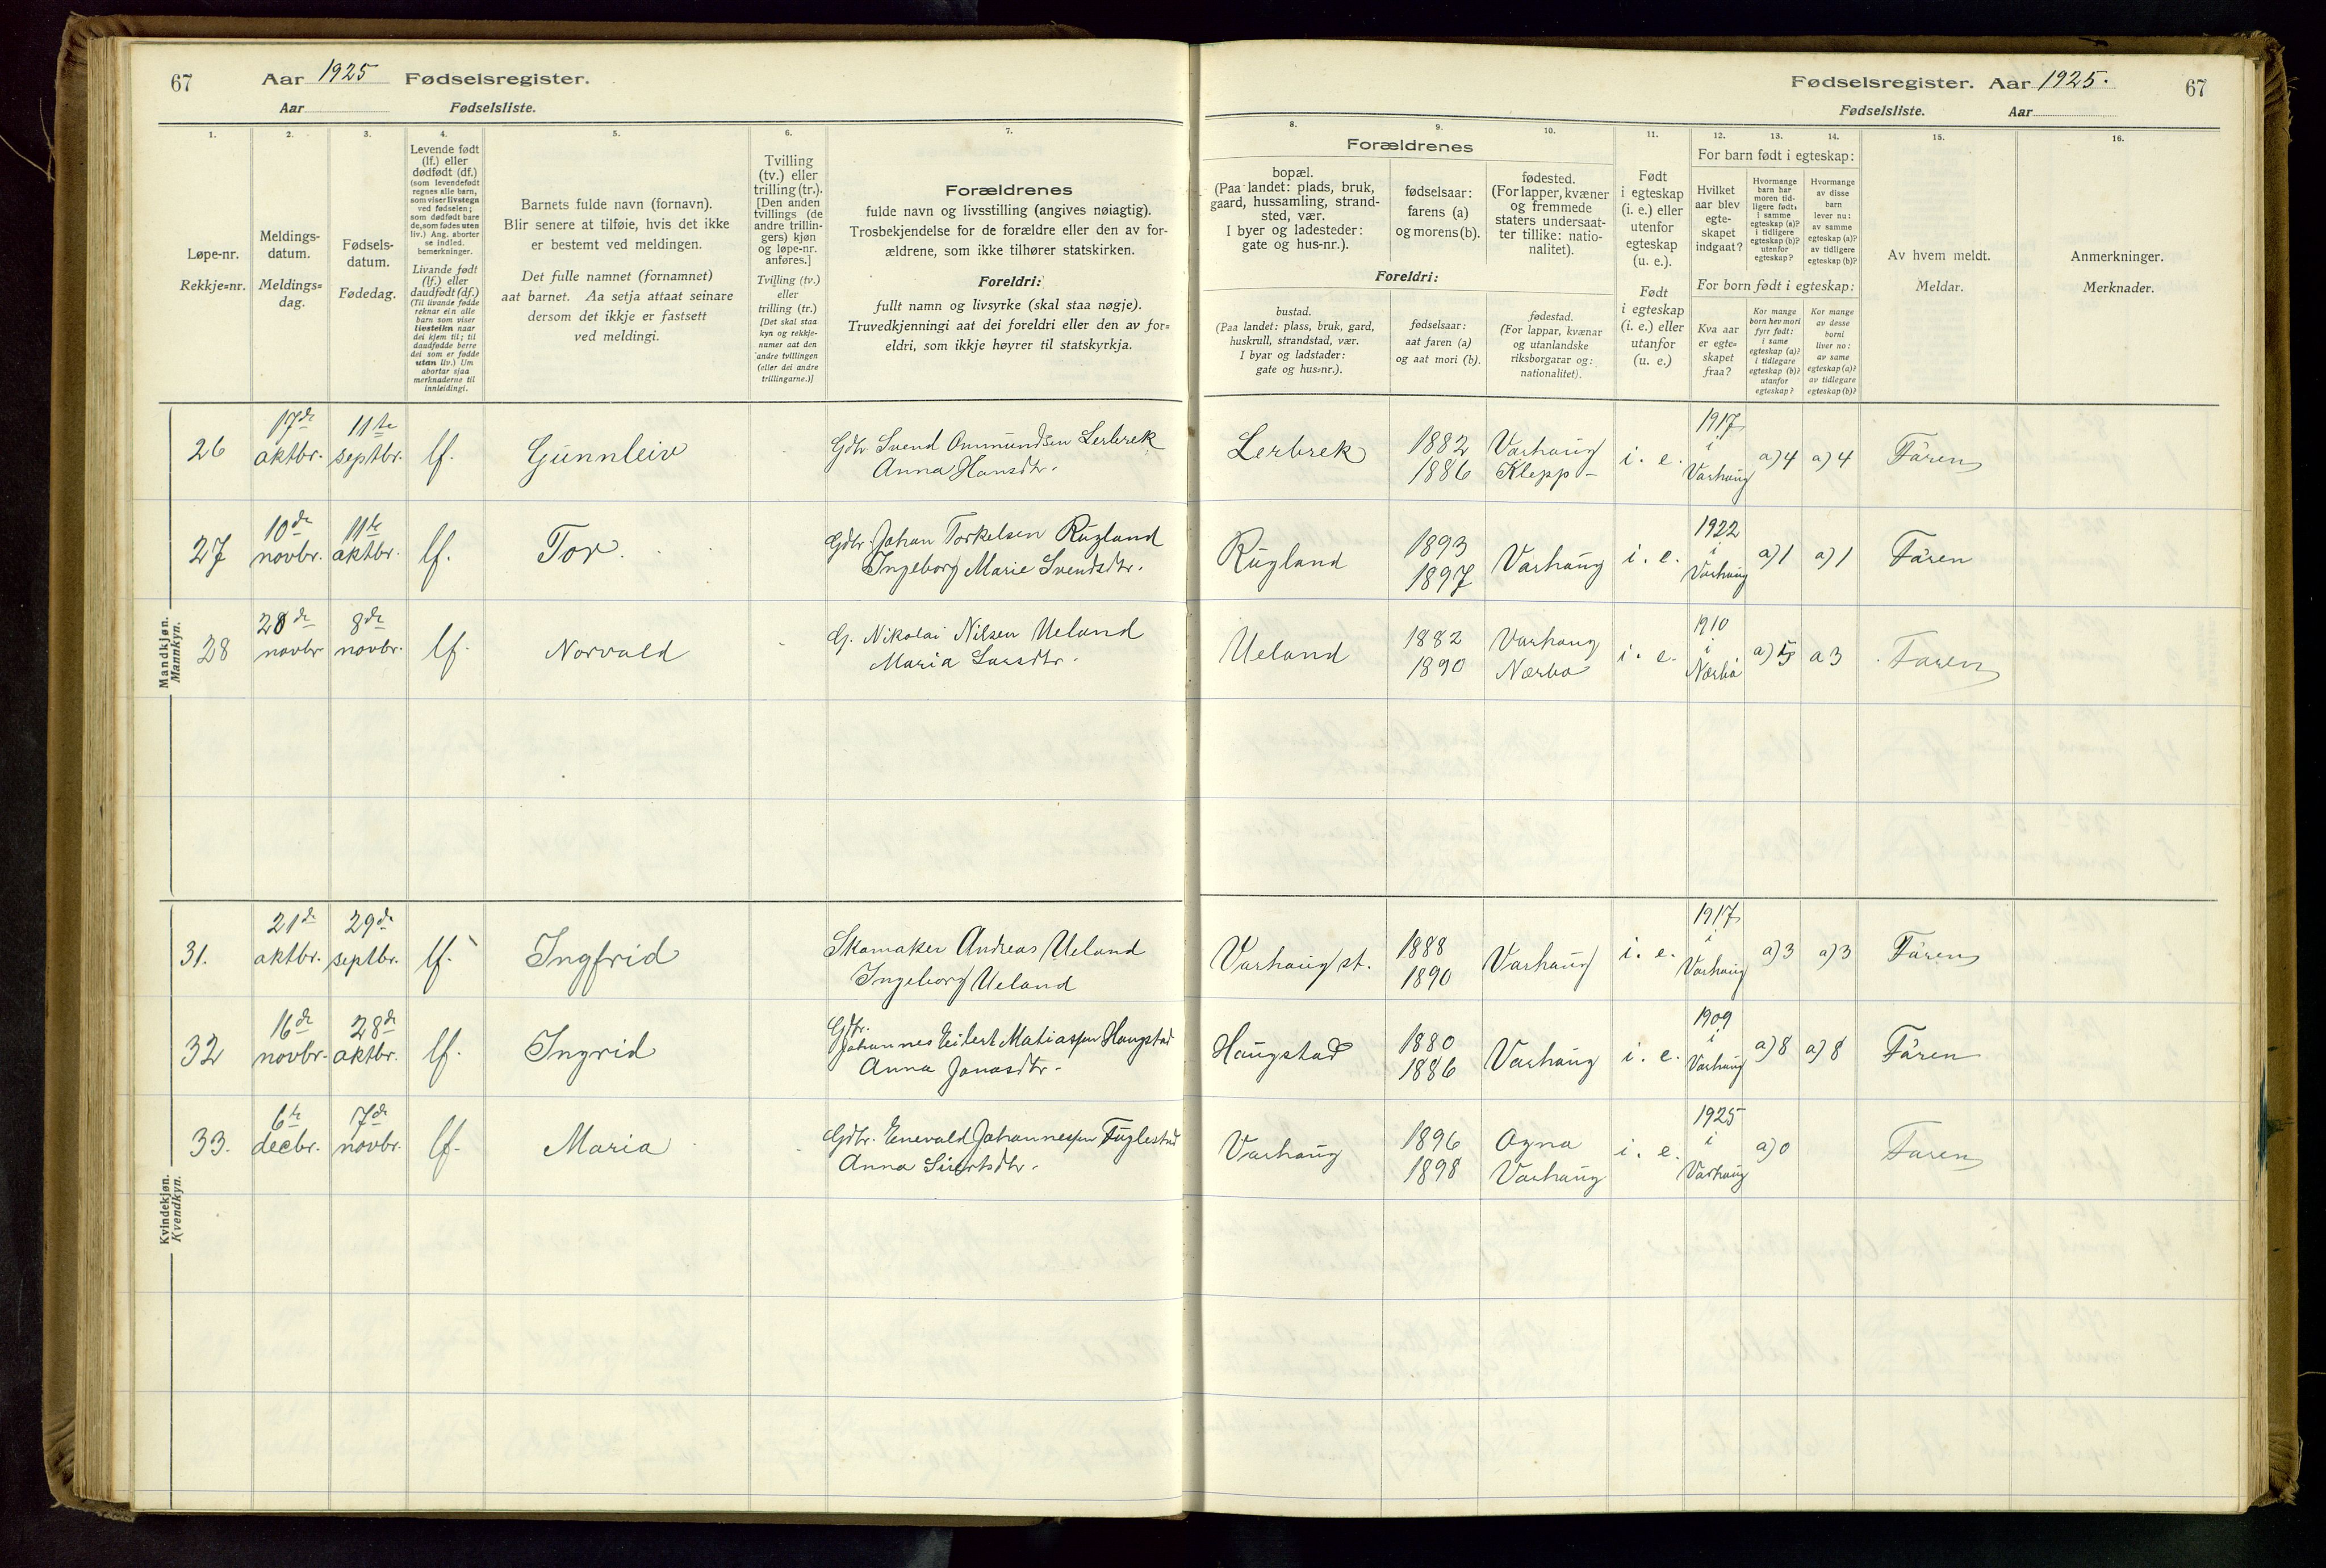 67 Aar 1925 Fødselsregister.
Aar Fødselsliste.
1.
2.
3.
4.
5.
6.
7.
Løpe-nr.
Rekkje=nr.
Meldings-
datum.
Meldings=
dag.
Fødsels-
datum.
Fødedag.
Levende født
(lf.) eller
dødfødt (df.)
(som levendefødt
regnes alle barn,
som viser livstegn
ved fødselen;
som dødfødt bare
de, som fødes uten
liv.) Ang. aborter
se indled.
bemerkninger.
Livande født
(lf.) eller
daudfødt (df.)
(Til livande fødde
reknar ein alle
barn som viser
livsteikn naar
dei kjem til; til
daudfødde berre
dei som er fødde
utan liv.) Um
abortar sjaa
merknaderne til
innleidingi.
Barnets fulde navn (fornavn).
Blir senere at tilføie, hvis det ikke
er bestemt ved meldingen.
Det fulle namnet (fornamnet)
aat barnet. Aa setja attaat seinare
dersom det ikkje er fastsett
ved meldingi.
Tvilling
(tv.) eller
trilling (tr.).
[Den anden
tvillings (de
andre trillin-
gers) kjøn
og løpe-nr.
anføres.]
Tvilling (tv.)
eller
trilling (tr.)
[Det skal staa
kyn og rekkje-
numer aat den
andre tvillingen
(eller dei andre
trillingarne.)]
Forældrenes
fulde navn og livsstilling (angives nøiagtig).
Trosbekjendelse for de forældre eller den av for-
ældrene, som ikke tilhører statskirken.
Foreldri:
fullt namn og livsyrke (skal staa nøgje).
Truvedkjenningi aat dei foreldri eller den av for=
eldri, som ikkje høyrer til statskyrkja.
Mandkjøn.
Mannkyn.
26 17de oktbr. 11te septbr. lf. Gunnleiv Gdbr Svend Ommundsen Lerbrek
Anna Hansdtr.
27 10de novbr. 11te oktbr. lf. Tor. Gdbr. Johan Torkelsen Rugland
Ingeborg Marie Svendsdtr.
28 28de novbr 8de novbr. lf. Norvald G. Nikolai Nilsen Ueland
Maria Larsdtr.
Kvindekjøn.
Kvendkyn.
31. 21de oktbr. 29de septbr. lf. Ingfrid Skomaker Andreas Ueland
Ingeborg Ueland
32 16de novbr. 28de oktbr. lf. Ingrid Gdbr.
Johannes Eilert Matiassen Haugstad
Anna Jonasdtr.
33. 6te decbr. 7de novbr. lf. Maria Gdbr. Enevald Johannessen Fuglestad
Anna Sivertsdtr.
Fødselsregister. Aar 1925. 67
Fødselsliste. Aar
8.
9.
10.
11.
12.
13.
14.
15.
16.
Forældrenes
bopæl.
(Paa landet: plads, bruk,
gaard, hussamling, strand-
sted, vær.
I byer og ladesteder:
gate og hus-nr.).
fødselsaar:
farens (a)
og morens (b).
fødested.
(For lapper, kvæner
og fremmede
staters undersaat-
ter tillike: natio-
nalitet).
Foreldri:
bustad.
(Paa landet: plass, bruk, gard,
huskrull, strandstad, vær.
I byar og ladstader:
gate og hus=nr.).
fødselsaar:
aat faren (a)
og aat mori (b).
fødestad.
(For lappar, kvænar
og utanlandske
riksborgarar og:
nationalitet).
Født
i egteskap
(i. e.) eller
utenfor
egteskap
(u. e.).
Født
i egteskap
(i. e.) eller
utanfor
egteskap
(u. e.)
For barn født i egteskap:
Hvilket
aar blev
egte-
skapet
indgaat?
Hvormange
barn har
moren tid-
ligere født:
i samme
egteskap (a)?
i tidligere
egteskap (b)?
utenfor
egteskap?
Hvormange
av disse
barn
lever nu:
av samme
egteskap (a)?
av tidligere
egteskap (b)?
For born født i egteskap:
Kva aar
er egte=
skapet
fraa?
Kor mange
born hev mori
fyr født:
i same
egteskap (a)?
i tidlegare
egteskap (b)?
utanfor
egteskap?
Kor mange
av desse
borni
liver no:
av same
egteskap (a)?
av tidlegare
egteskap (b)?
Av hvem meldt.
Meldar.
Anmerkninger.
Merknader.
Lerbrek 1882 Varhaug i. e. 1917 i Varhaug a) 4 a) 4 Faren
1886 Klepp
Rugland 1893 Varhaug i. e. 1922 i Varhaug a) 1 a) 1 Faren
1897
Ueland 1882 Varhaug i. e. 1910 i Nærbø a) 5 a 3 Faren
1890 Nærbø
Varhaug st. 1888 Varhaug i. e. 1917 i Varhaug a) 3 a) 3 Faren
1890
Haugstad 1880 Varhaug i. e. 1909 i Varhaug a) 8 a) 8 Faren
1886
Varhaug 1896 Ogna i. e. 1925 i Varhaug a) 0 Faren
1898 Varhaug